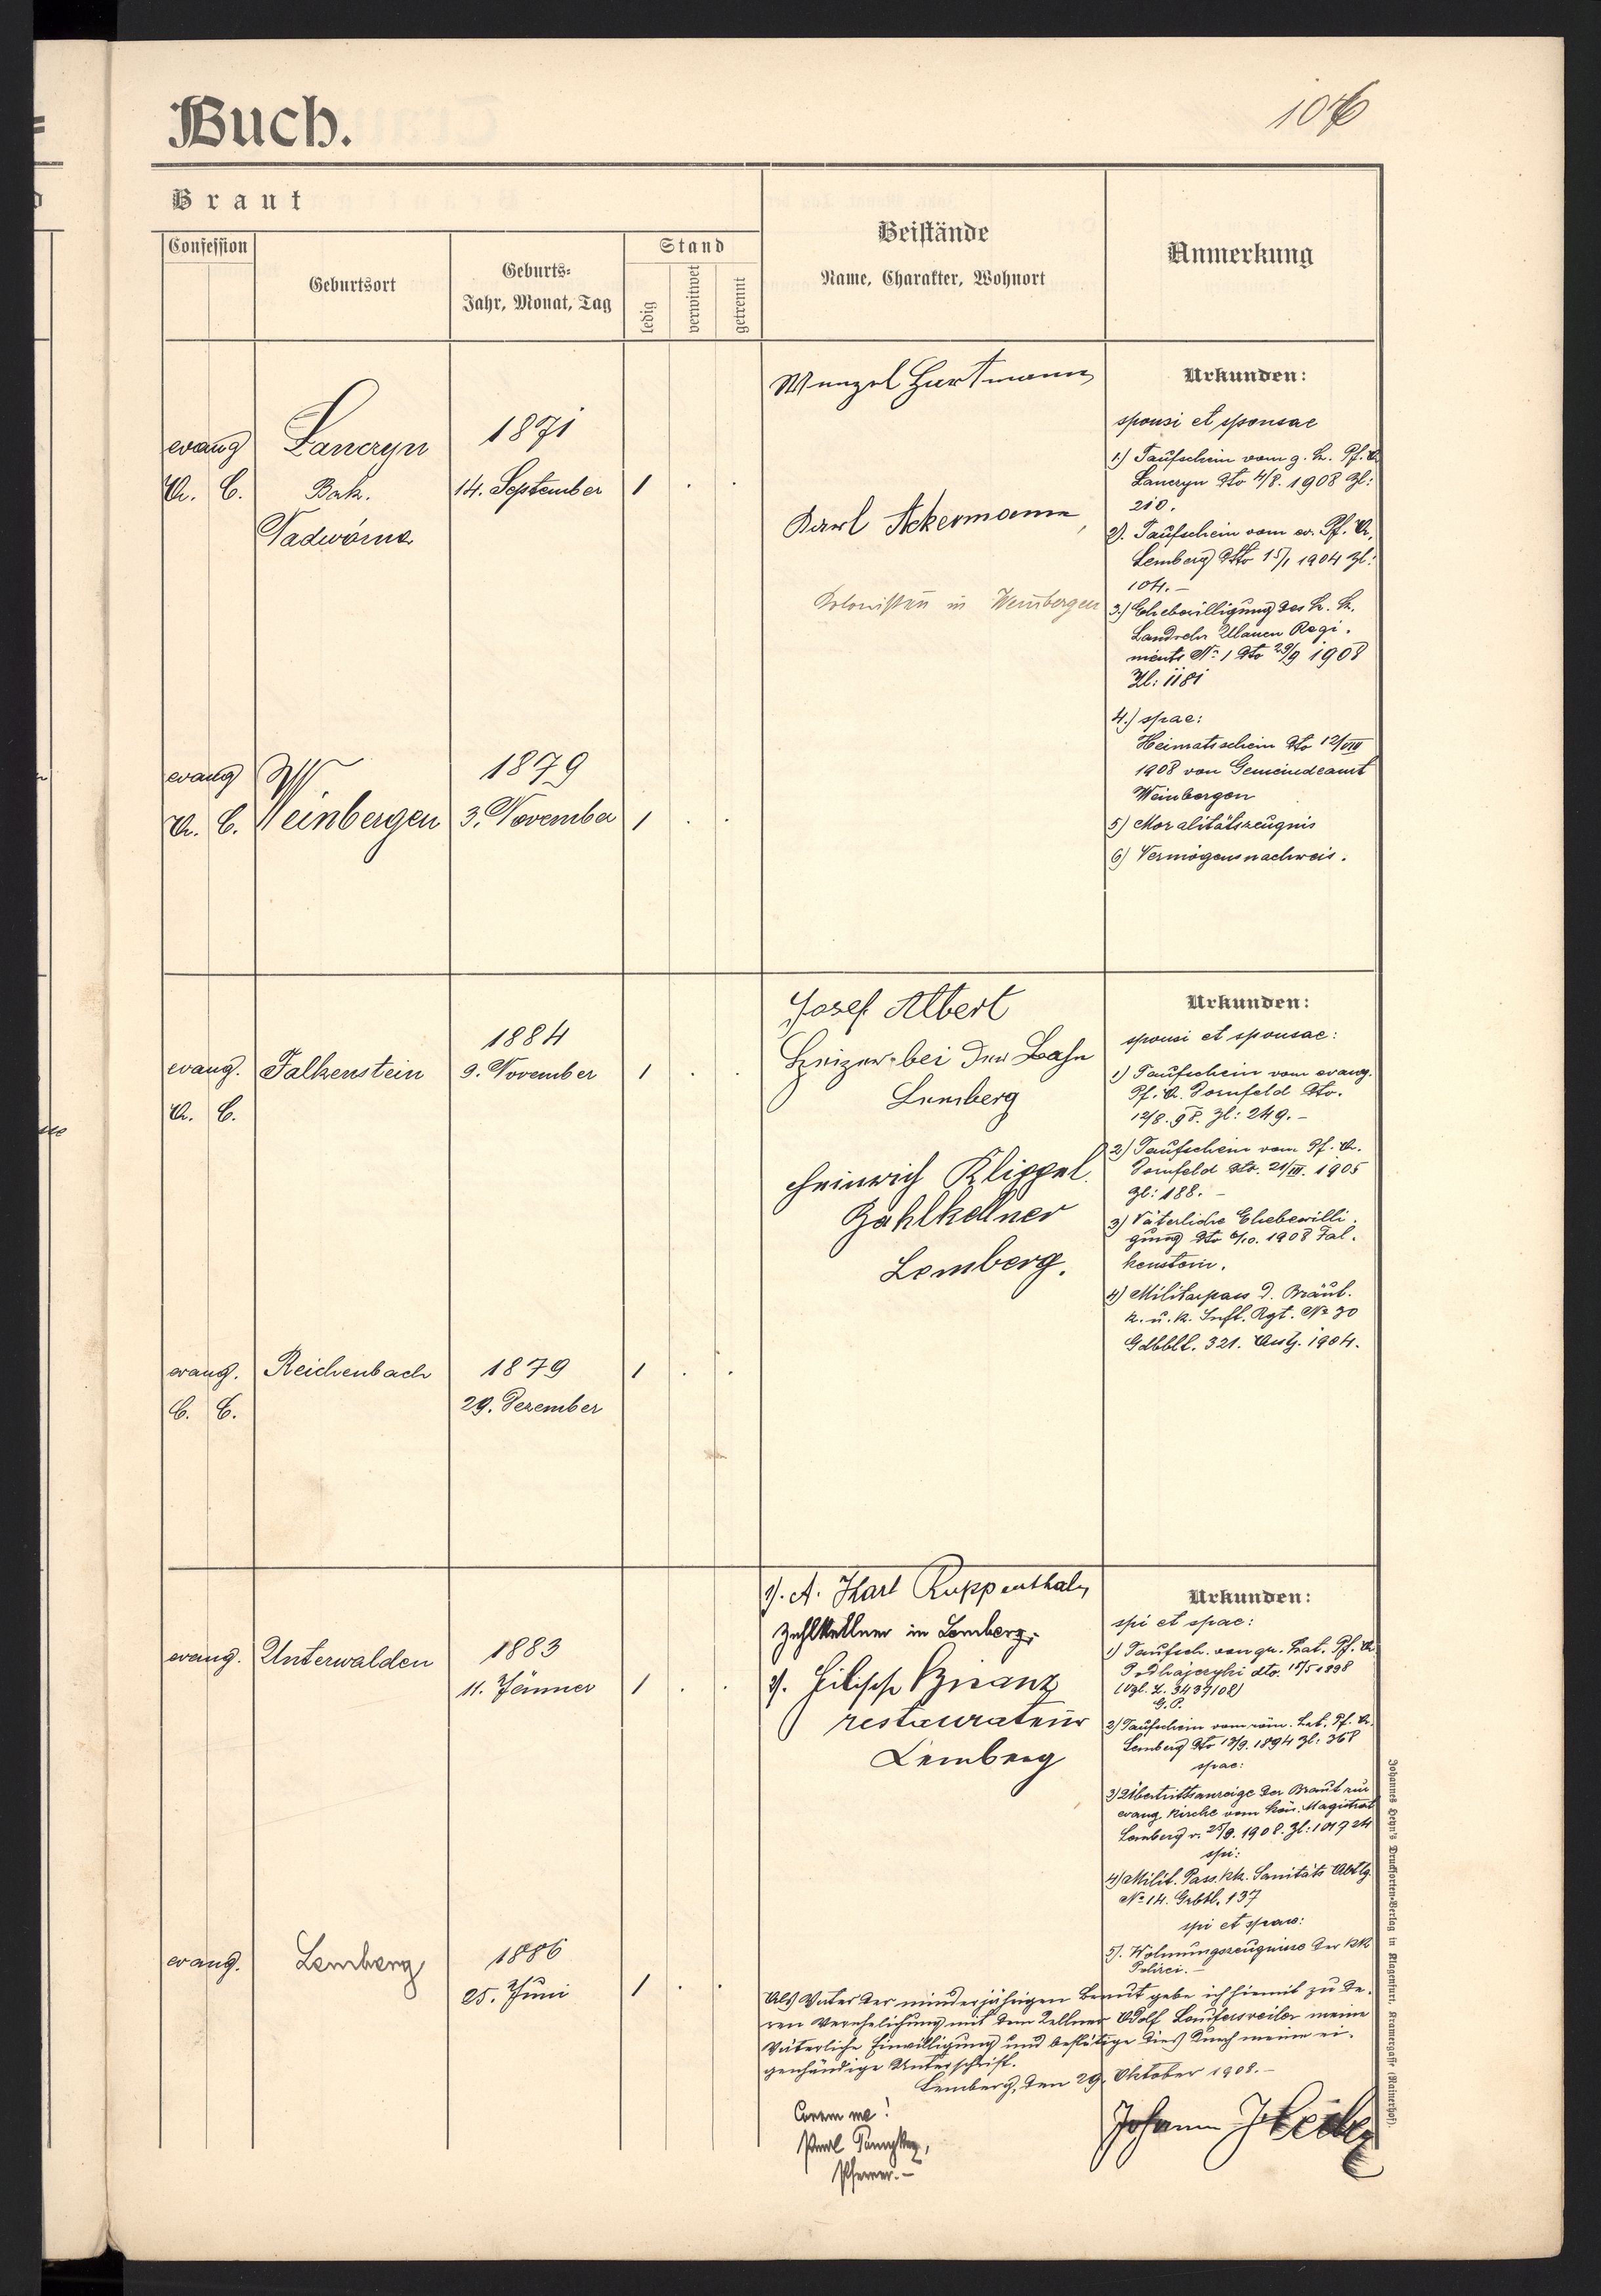 Buch.
106
Braut
Confession
Geburtsort
Geburts-
Jahr, Monat, Tag
Stand
ledig
verwitwet
getrennt
Beistände
Name, Charakter, Wohnort
Anmerkung
evang
A. C.
Lanczyn
Bzk.
Nadwórna
1871
14. September
1 . .
Wenzel Hartmann
Karl Ackermann
Kolonisten in Weinbergen
Urkunden:
sponsi et sponsae
1.) Taufschein vom g. k. Pf. A.
Lanczyn dto 4/8. 1908 Zl:
210.
2). Taufschein vom ev. Pf. A.
Lemberg dto 15/1 1904 Zl:
104. –
3.) Ehebewilligung des k. k.
Landwehr Ulanen Regi-
ments No 1 dto 29/9 1908
Zl: 1181
4.) spae:
Heimatsschein dto 12/VIII
1908 von Gemeindeamt
Weinbergen
5) Moralitätszeugnis
6) Vermögensnachweis.
evang
A. C.
Weinbergen
1879
3. November
1 . .
evang.
A. C.
Falkenstein
1884
9. November
1 . .
Josef Albert
Heizer bei der Bahn
Lemberg
Heinrich Klippel
Zahlkellner
Lemberg.
Urkunden:
sponsi et sponsae:
1) Taufschein vom evang.
Pf. A. Dornfeld dto.
12/8. 98. Zl: 249. –
2) Taufschein vom Pf. A.
Dornfeld dto. 21/III. 1905
Zl: 188. –
3) Väterliche Ehebewilli-
gung dto 1908 Fal-
kenstein.
4) Militärpass d. Bräut.
k. u. k. Inft. Rgt. No 30
Gdbbll. 321. Asstj. 1904.
evang.
C. C.
Reichenbach
1879
29. Dezember
1 . .
evang.
Unterwalden
1883
11. Jänner
1 . .
1). A. Karl Ruppenthal,
Zahlkellner in Lemberg;
2). Filipp Bisanz
restaurateur
Lemberg
Urkunden:
spi et spae:
1) Taufsch. von gr. kat. Pf. A.
Podhajczyki dto. 1898
(Vgl. Z. 343710)
G. P.
2) Taufschein vom röm. kat. Pf. A.
Lemberg dto 13/9. 1894 Zl: 368
spae:
3) Übertrittsanzeige der Braut zur
evang. Kirche vom kön. Magistrat
Lemberg v. 25/9. 1908. Zl: 101724
spi:
4) Milit. Pass. kk. Sanitäts Abtlg
No 14. Grbbl. 137
spi et spae:
5). Wohnungszeugnisse der kk
Polizei. –
evang.
Lemberg
1886
25. Juni
1 . .
Als Vater der minderjährigen Braut gebe ich hiemit zu de-
ren Verehelichung mit dem Kellner Adolf Laufersweiler meine
Väterliche Einwilligung und bestätige dies durch meine ei-
genhändige Unterschrift.
Lemberg, den 29. Oktober 1908. –
Coram me:
Pfarrer. –
Johann
Johannes Heyn's Drucksorten-Verlag in Klagenfurt, Kramergasse (Rainerhof).